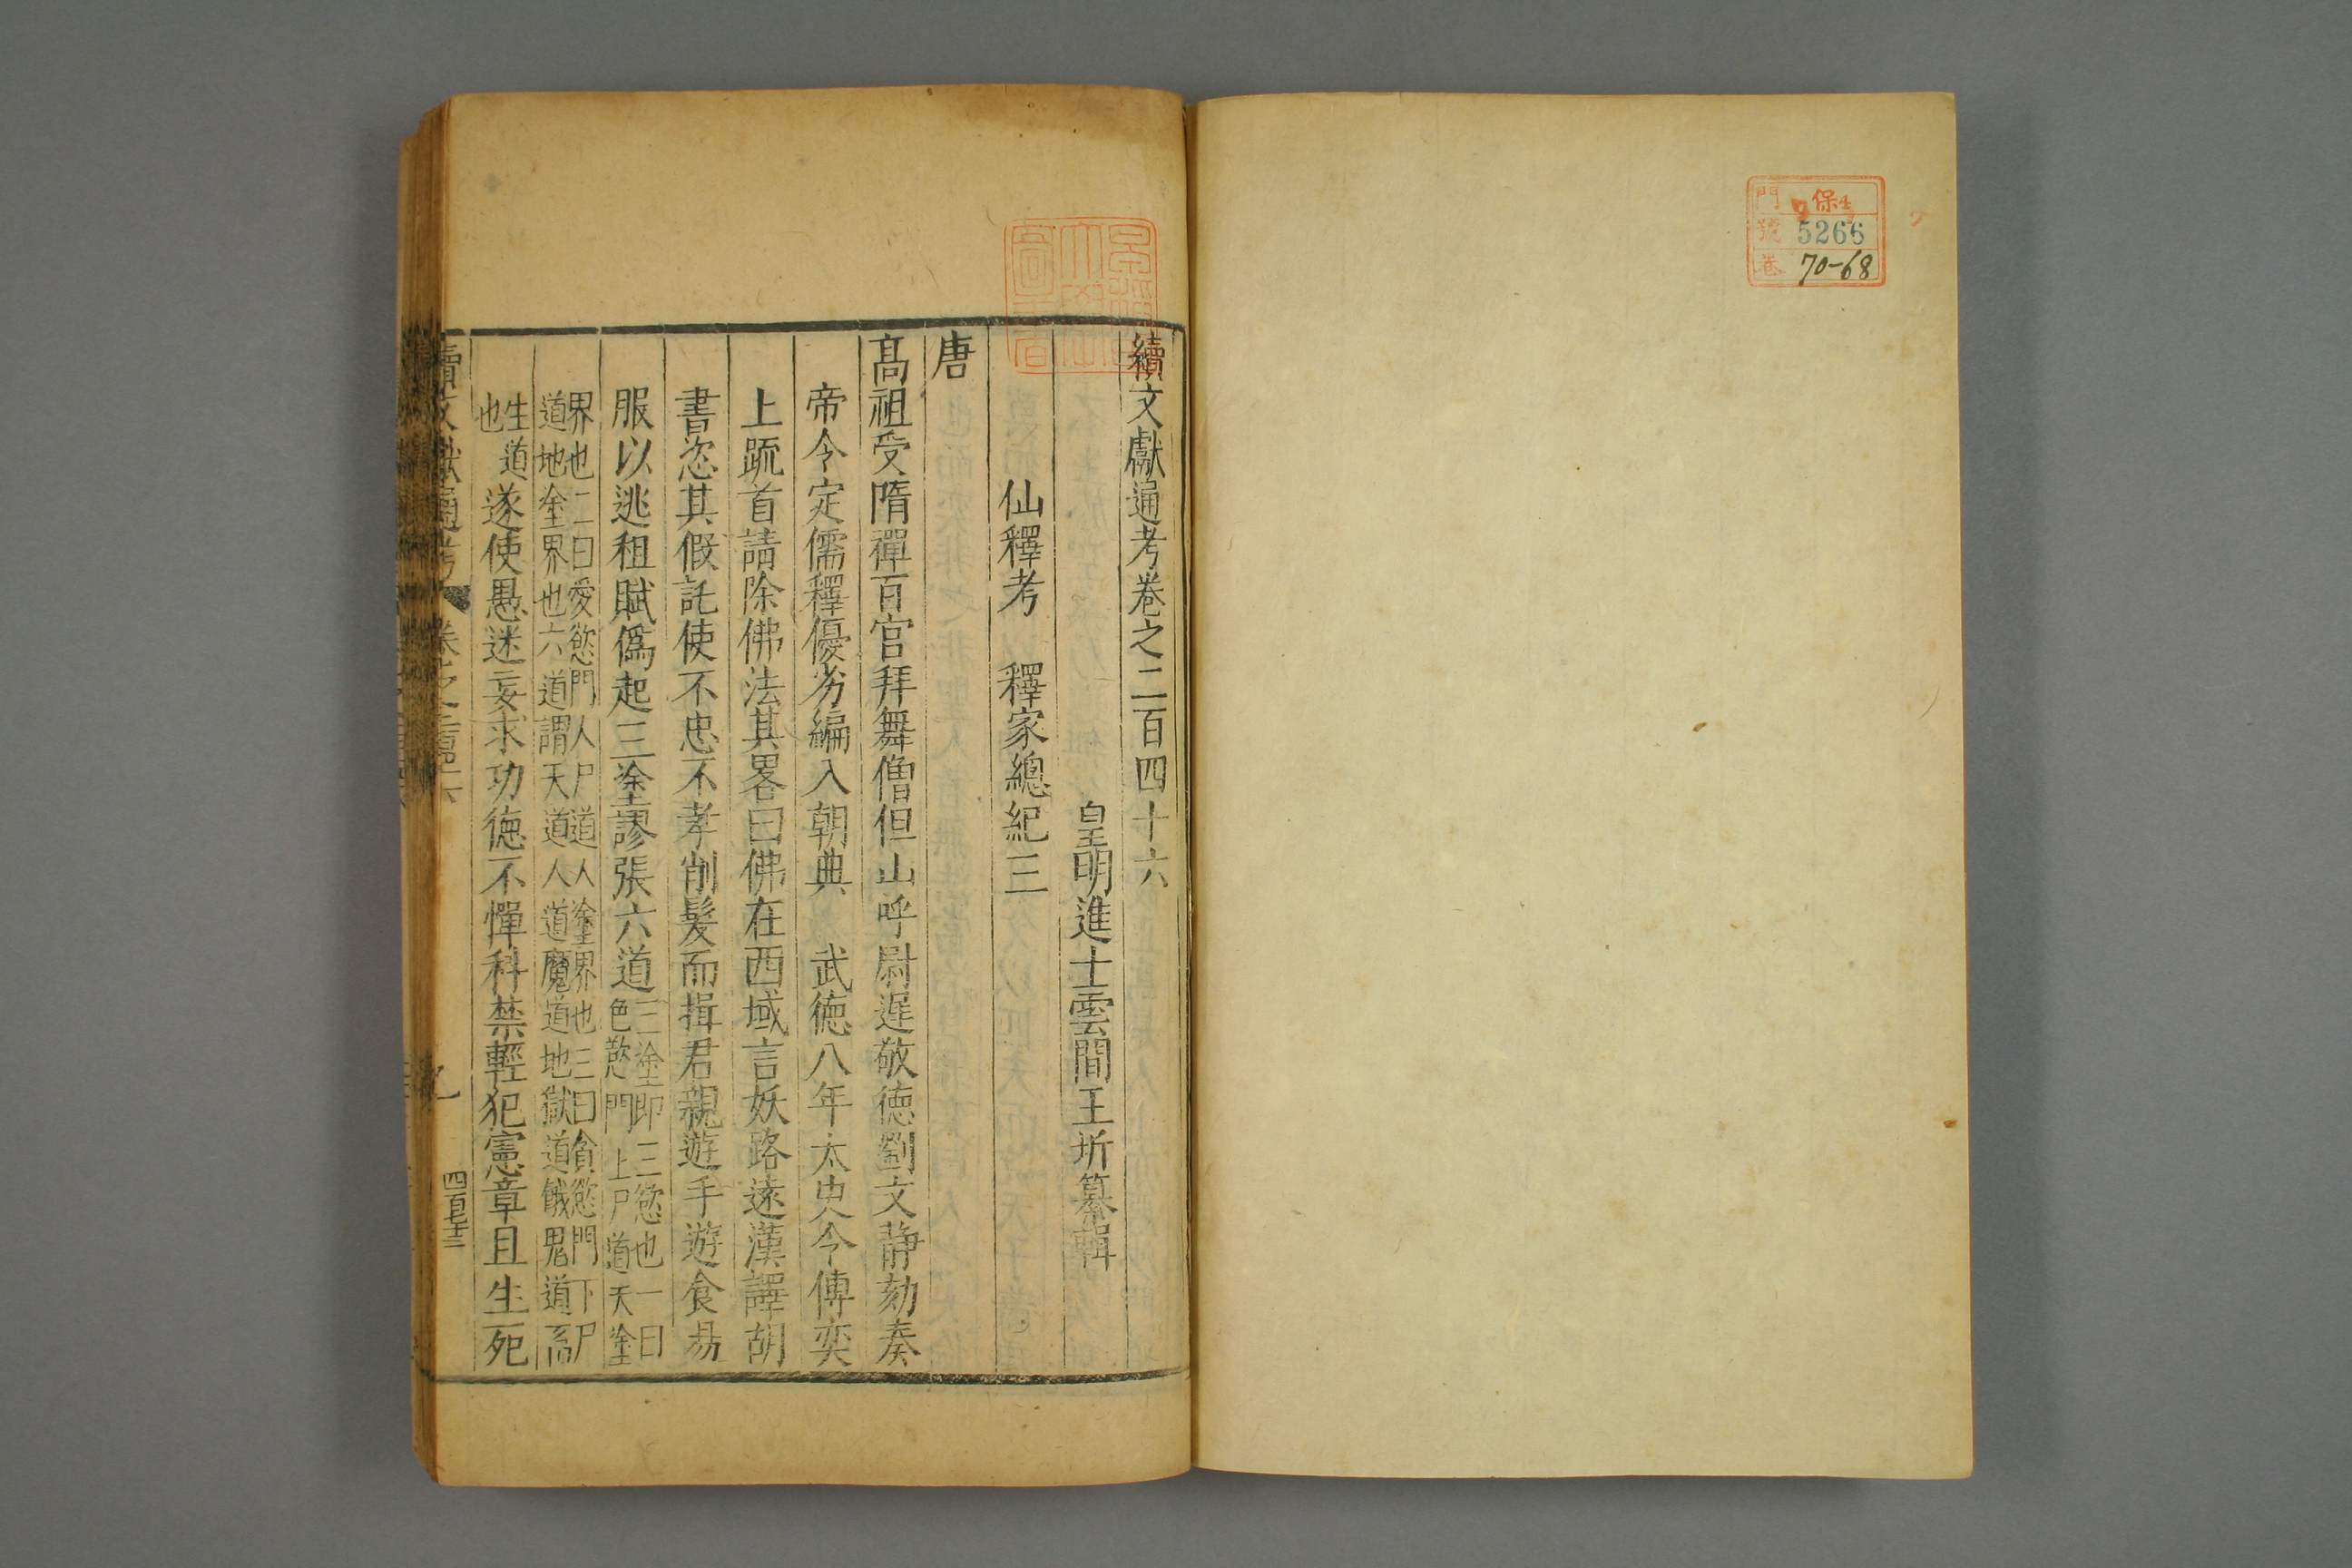 門 保
號 5266
卷 70-68
續文獻通考卷之二百四十六
皇明進士雲間王圻纂輯
仙釋考　釋家總紀三
唐
髙祖受隋禪百官拜舞僧但山呼尉遲敬德劉文靜劾奏
帝令定儒釋優劣編入朝典　武德八年太史令傅奕
上疏首請除佛法其畧曰佛在西域言妖路遠漢譯胡
書恣其假託使不忠不孝削髮而揖君親遊手遊食易
服以逃租賦僞起三塗謬張六道三塗即三慾也一曰
色慾門上尸道天塗
界也二曰愛慾門人尸道人塗界也三曰貪慾門下尸
道地塗界也六道謂天道人道魔道地獄道餓鬼道畜
生道
也
遂使愚迷妄求功德不憚科禁輕犯憲章且生死
續文獻通考 卷之二百四十六
四百七十三